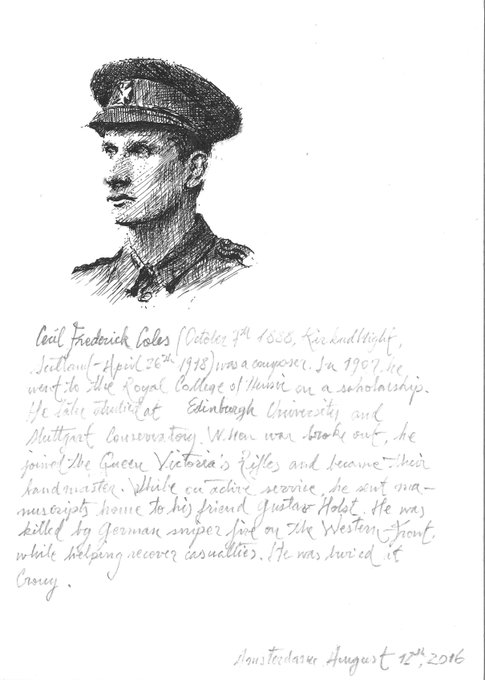 Cecil Frederick Coles (October 7th 1888, Kirkudbright,
Scotland - April 26th 1918) was a composer. In 1907 he
went to the Royal College of Music on a scholarship.
He later studied at Edinburgh University and
Stuttgart Conservatory. When war broke out, he
joined the Queen Victoria's Rifles and became their
bandmaster. While on active service, he sent ma-
nuscripts home to his friend Gustav Holst. He was
killed by German sniper fire on the Western Front,
while helping recover casualties. He was buried at
Crouy.
Amsterdam, August 12th, 2016